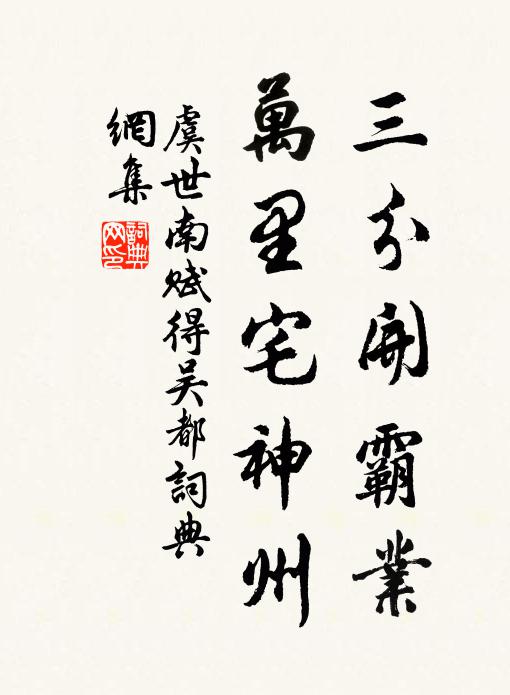 三分開霸業
萬里宅神州
虞世南赋得吴都詞典
網集
詞典
网印